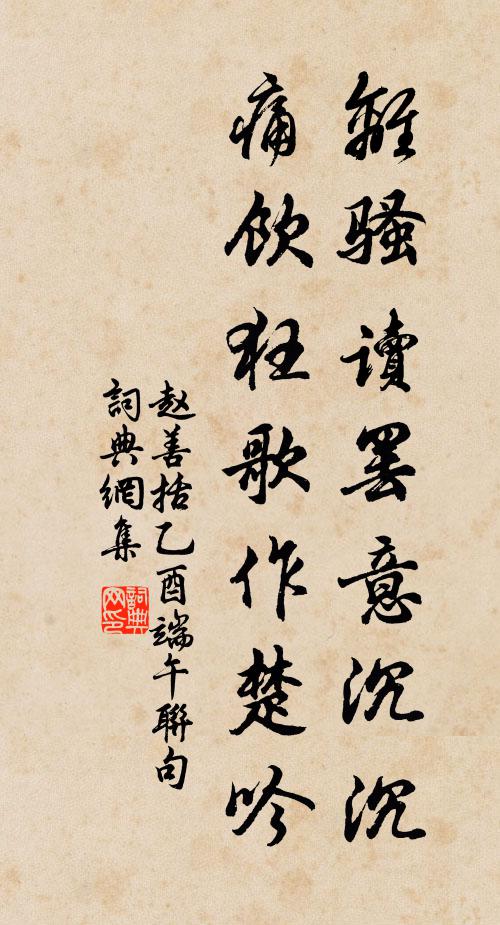 離騷讀罢意沉沉
痛飲狂歌作楚吟
赵善括乙酉端午聯句
詞典網集
詞典
网印